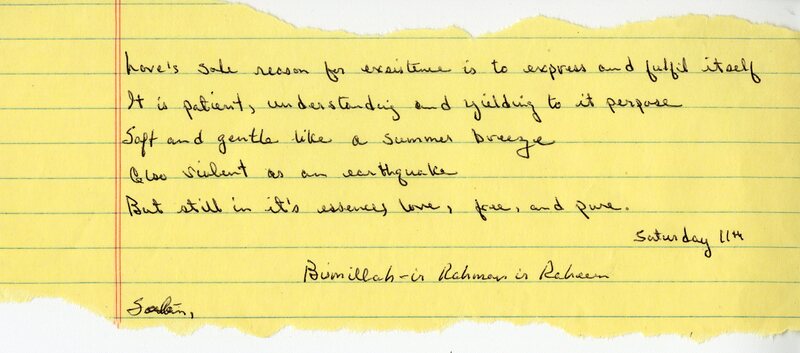 Love's sole reason for exsistence is to express and fulfil itself
It is patient, understanding and yielding to it perpose
Soft and gentle like a summer breeze
Also violent as an earthquake
But still in it's essences, love, free, and pure.
Saturday 11th
Bismillah-ir Rahman ir Raheem